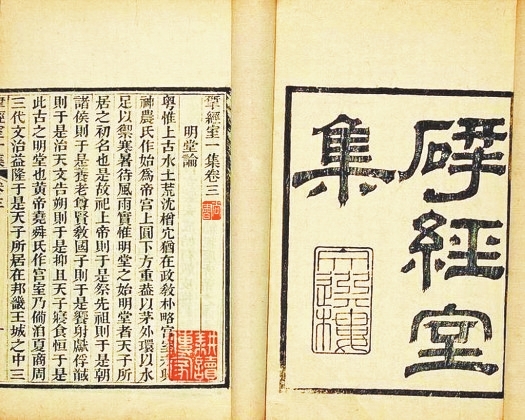 揅經室
集
文選樓
揅經室一集卷三
明堂論
粵惟上古水土荒沈橧穴猶在政敎朴略宮室未興
神農氏作始爲帝宮上圓下方重蓋以茅外環以水
足以禦寒暑待風雨實惟明堂之始明堂者天子所
居之初名也是故祀上帝則于是祭先祖則于是朝
諸侯則于是養老尊賢敎國子則于是饗射獻俘馘
則于是治天文告朔則于是抑且天子寢食恒于是
此古之明堂也黃帝堯舜氏作宮室乃備洎夏商周
三代文治益隆于是天子所居在邦畿王城之中三
揅經室一集 卷三
一
耕讀傳家